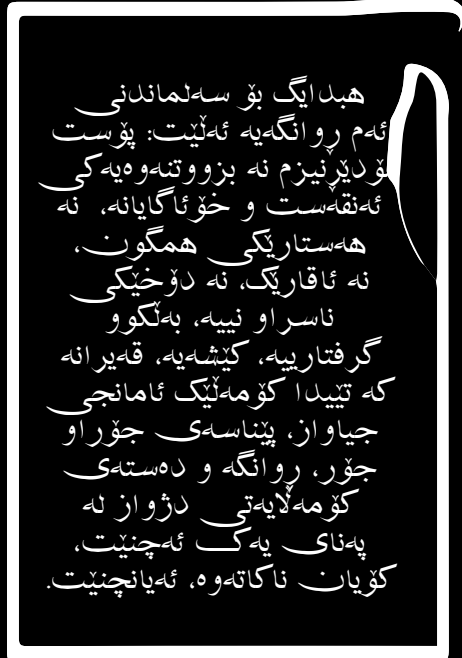 هبدایگ بۆ سەلماندنی
ئەم ڕوانگەیە ئەڵێت: پۆست
مۆدێڕنیزم نە بزووتنەوەیەکی
ئەنقەست و خۆئاگایانە، نە
هەستارێکی همگون،
نە ئاقارێک، نە دۆخێکی
ناسراو نییە، بەڵکوو
گرفتارییە، کێشەیە، قەیرانە
کە تێیدا کۆمەڵێک ئامانجی
جیاواز، پێناسەی جۆراو
جۆر، ڕوانگە و دەستەی
کۆمەڵایەتی دژواز لە
پەنای یەک ئەچنێت،
کۆیان ناکاتەوە، ئەیانچنێت.